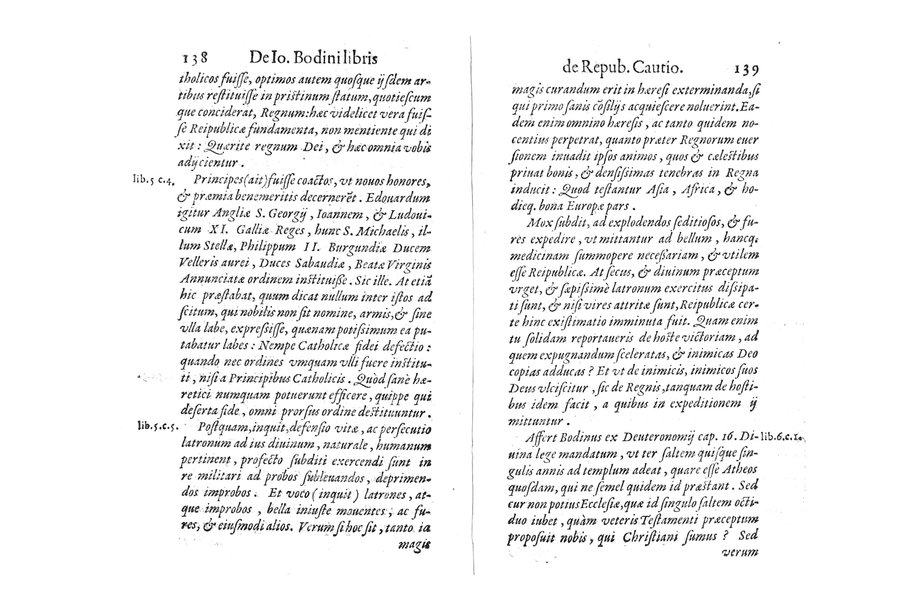 138 De Io. Bodini libris
tholicos fuiſſe, optimos autem quoſque ijſdem ar-
tibus reſtituiſſe in priſtinum ſtatum, quotieſcum
que conciderat, Regnum: hæc videlicet vera fuiſ-
ſe Reipublicæ fundamenta, non mentiente qui di
xit: Quærite regnum Dei, & hæc omnia vobis
adijcientur.
lib. 5 c. 4. Principes (ait) fuiſſe coactos, vt nouos honores,
& præmia benemeritis decernerēt. Edouardum
igitur Angliæ S. Georgij, Ioannem, & Ludoui-
cum XI. Galliæ Reges, hunc S. Michaelis, il-
lum Stellæ, Philippum II. Burgundiæ Ducem
Velleris aurei, Duces Sabaudiæ, Beatæ Virginis
Annunciatæ ordinem inſtituiſſe. Sic ille. At etiā
hic præſtabat, quum dicat nullum inter iſtos ad
ſcitum, qui nobilis non ſit nomine, armis, & ſine
vlla labe, expreſſiſſe, quænam potiſſimum ea pu-
tabatur labes: Nempe Catholicæ fidei defectio:
quando nec ordines vmquam vlli fuere inſtitu-
ti, niſi a Principibus Catholicis. Quòd ſanè hæ-
retici numquam potuerunt efficere, quippe qui
deſerta fide, omni prorſus ordine deſtituuntur.
lib. 5. c. 5. Poſtquam, inquit, defenſio vitæ, ac perſecutio
latronum ad ius diuinum, naturale, humanum
pertinent, profecto ſubditi exercendi ſunt in
re militari ad probos ſubleuandos, deprimen-
dos improbos. Et voco (inquit) latrones, at-
que improbos, bella iniuſte mouentes; ac fu-
res, & eiuſmodi alios. Verum ſi hoc ſit, tanto ia
magis
de Repub. Cautio. 139
magis curandum erit in hæreſi exterminanda, ſi
qui primo ſanis cōſilijs acquieſcere noluerint. Ea-
dem enim omnino hæreſis, ac tanto quidem no-
centius perpetrat, quanto præter Regnorum euer
ſionem inuadit ipſos animos, quos & cæleſtibus
priuat bonis, & denſiſſimas tenebras in Regna
inducit: Quod teſtantur Aſia, Africa, & ho-
dieq. bona Europæ pars.
Mox ſubdit, ad explodendos ſeditioſos, & fu-
res expedire, vt mittantur ad bellum, hancq;
medicinam ſummopere neceſſariam, & vtilem
eſſe Reipublicæ. At ſecus, & diuinum præceptum
vrget, & ſæpiſſimè latronum exercitus diſſipa-
ti ſunt, & niſi vires attritæ ſunt, Reipublicæ cer-
te hinc exiſtimatio imminuta fuit. Quam enim
tu ſolidam reportaueris de hoſte victoriam, ad
quem expugnandum ſceleratas, & inimicas Deo
copias adducas? Et vt de inimicis, inimicos ſuos
Deus vlciſcitur, ſic de Regnis, tanquam de hoſti-
bus idem facit, a quibus in expeditionem ij
mittuntur.
Affert Bodinus ex Deuteronomij cap. 16. Di- lib. 6. c. 1.
uina lege mandatum, vt ter ſaltem quiſque ſin-
gulis annis ad templum adeat, quare eſſe Atheos
quoſdam, qui ne ſemel quidem id præſtant. Sed
cur non potius Eccleſiæ, quæ id ſingulo ſaltem octi-
duo iubet, quàm veteris Teſtamenti præceptum
propoſuit nobis, qui Chriſtiani ſumus? Sed
verum